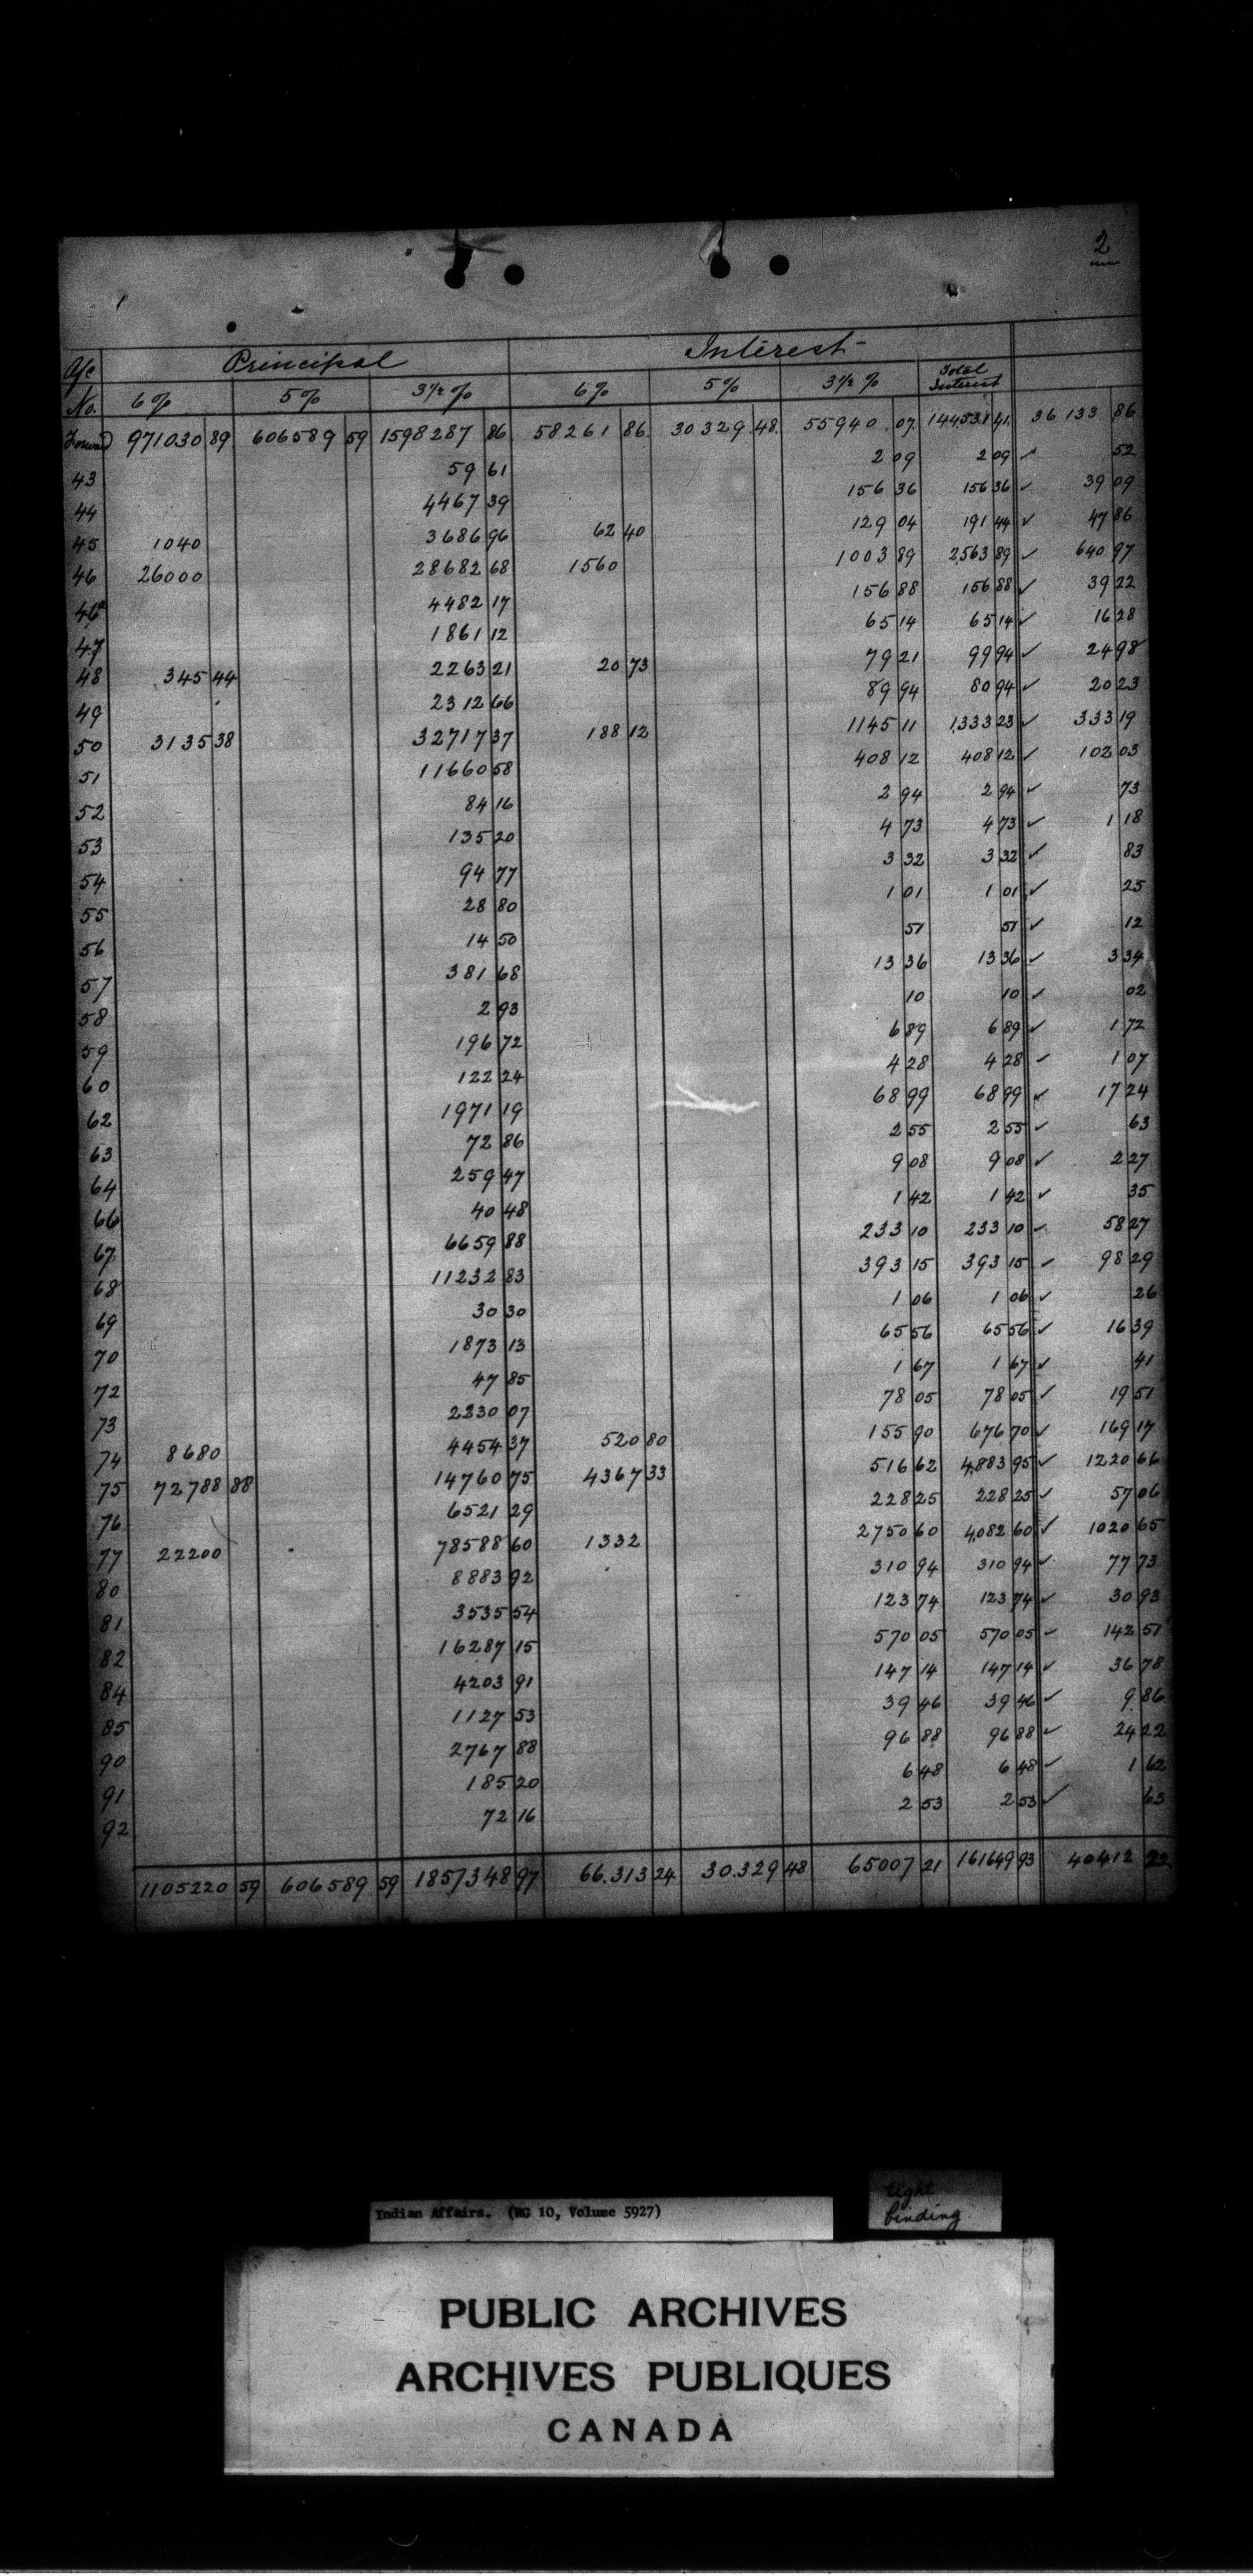 2
A/c Principal Interest
No. 6% 5% 3½% 6% 5% 3½% Total Interest
Forward 971030 89 606589 59 1598287 86 58261 86 30329 48 55940 07 144531 41 36133 86
43 59 61 2 09 2 09 ✓ 52
44 4467 39 156 36 156 36 ✓ 39 09
45 1040 3686 96 62 40 129 04 191 44 ✓ 47 86
46 26000 28682 68 1560 1003 89 2,563 89 ✓ 640 97
46a 4482 17 156 88 156 88 ✓ 39 22
47 1861 12 65 14 65 14 ✓ 16 28
48 345 44 2263 21 20 73 79 21 99 94 ✓ 24 98
49 2312 66 89 94 80 94 ✓ 20 23
50 3135 38 32717 37 188 12 1145 11 1,333 23 ✓ 333 19
51 11660 58 408 12 408 12 ✓ 102 03
52 84 16 2 94 2 94 ✓ 73
53 135 20 4 73 4 73 ✓ 1 18
54 94 77 3 32 3 32 ✓ 83
55 28 80 1 01 1 01 ✓ 25
56 14 50 51 51 ✓ 12
57 381 68 13 36 13 36 ✓ 3 34
58 2 93 10 10 ✓ 02
59 196 72 6 89 6 89 ✓ 1 72
60 122 24 4 28 4 28 ✓ 1 07
62 1971 19 68 99 68 99 ✓ 17 24
63 72 86 2 55 2 55 ✓ 63
64 259 47 9 08 9 08 ✓ 2 27
66 40 48 1 42 1 42 ✓ 35
67 6659 88 233 10 233 10 ✓ 58 27
68 11232 83 393 15 393 15 ✓ 98 29
69 30 30 1 06 1 06 ✓ 26
70 1873 13 65 56 65 56 ✓ 16 39
72 47 85 1 67 1 67 ✓ 41
73 2230 07 78 05 78 05 ✓ 19 51
74 8680 4454 37 520 80 155 90 676 70 ✓ 169 17
75 72788 88 14760 75 4367 33 516 62 4,883 95 ✓ 1220 66
76 6521 29 228 25 228 25 ✓ 57 06
77 22200 78588 60 1332 2750 60 4,082 60 ✓ 1020 65
80 8883 92 310 94 310 94 ✓ 77 73
81 3535 54 123 74 123 74 ✓ 30 93
82 16287 15 570 05 570 05 ✓ 142 51
84 4203 91 147 14 147 14 ✓ 36 78
85 1127 53 39 46 39 46 ✓ 9 86
90 2767 88 96 88 96 88 ✓ 24 22
91 185 20 6 48 6 48 ✓ 1 62
92 72 16 2 53 2 53 ✓ 63
1105220 59 606589 59 1857348 97 66.313 24 30.329 48 65007 21 161649 93 40412 22
Indian Affairs. (RG 10, Volume 5927)
tight
binding
PUBLIC ARCHIVES
ARCHIVES PUBLIQUES
CANADA